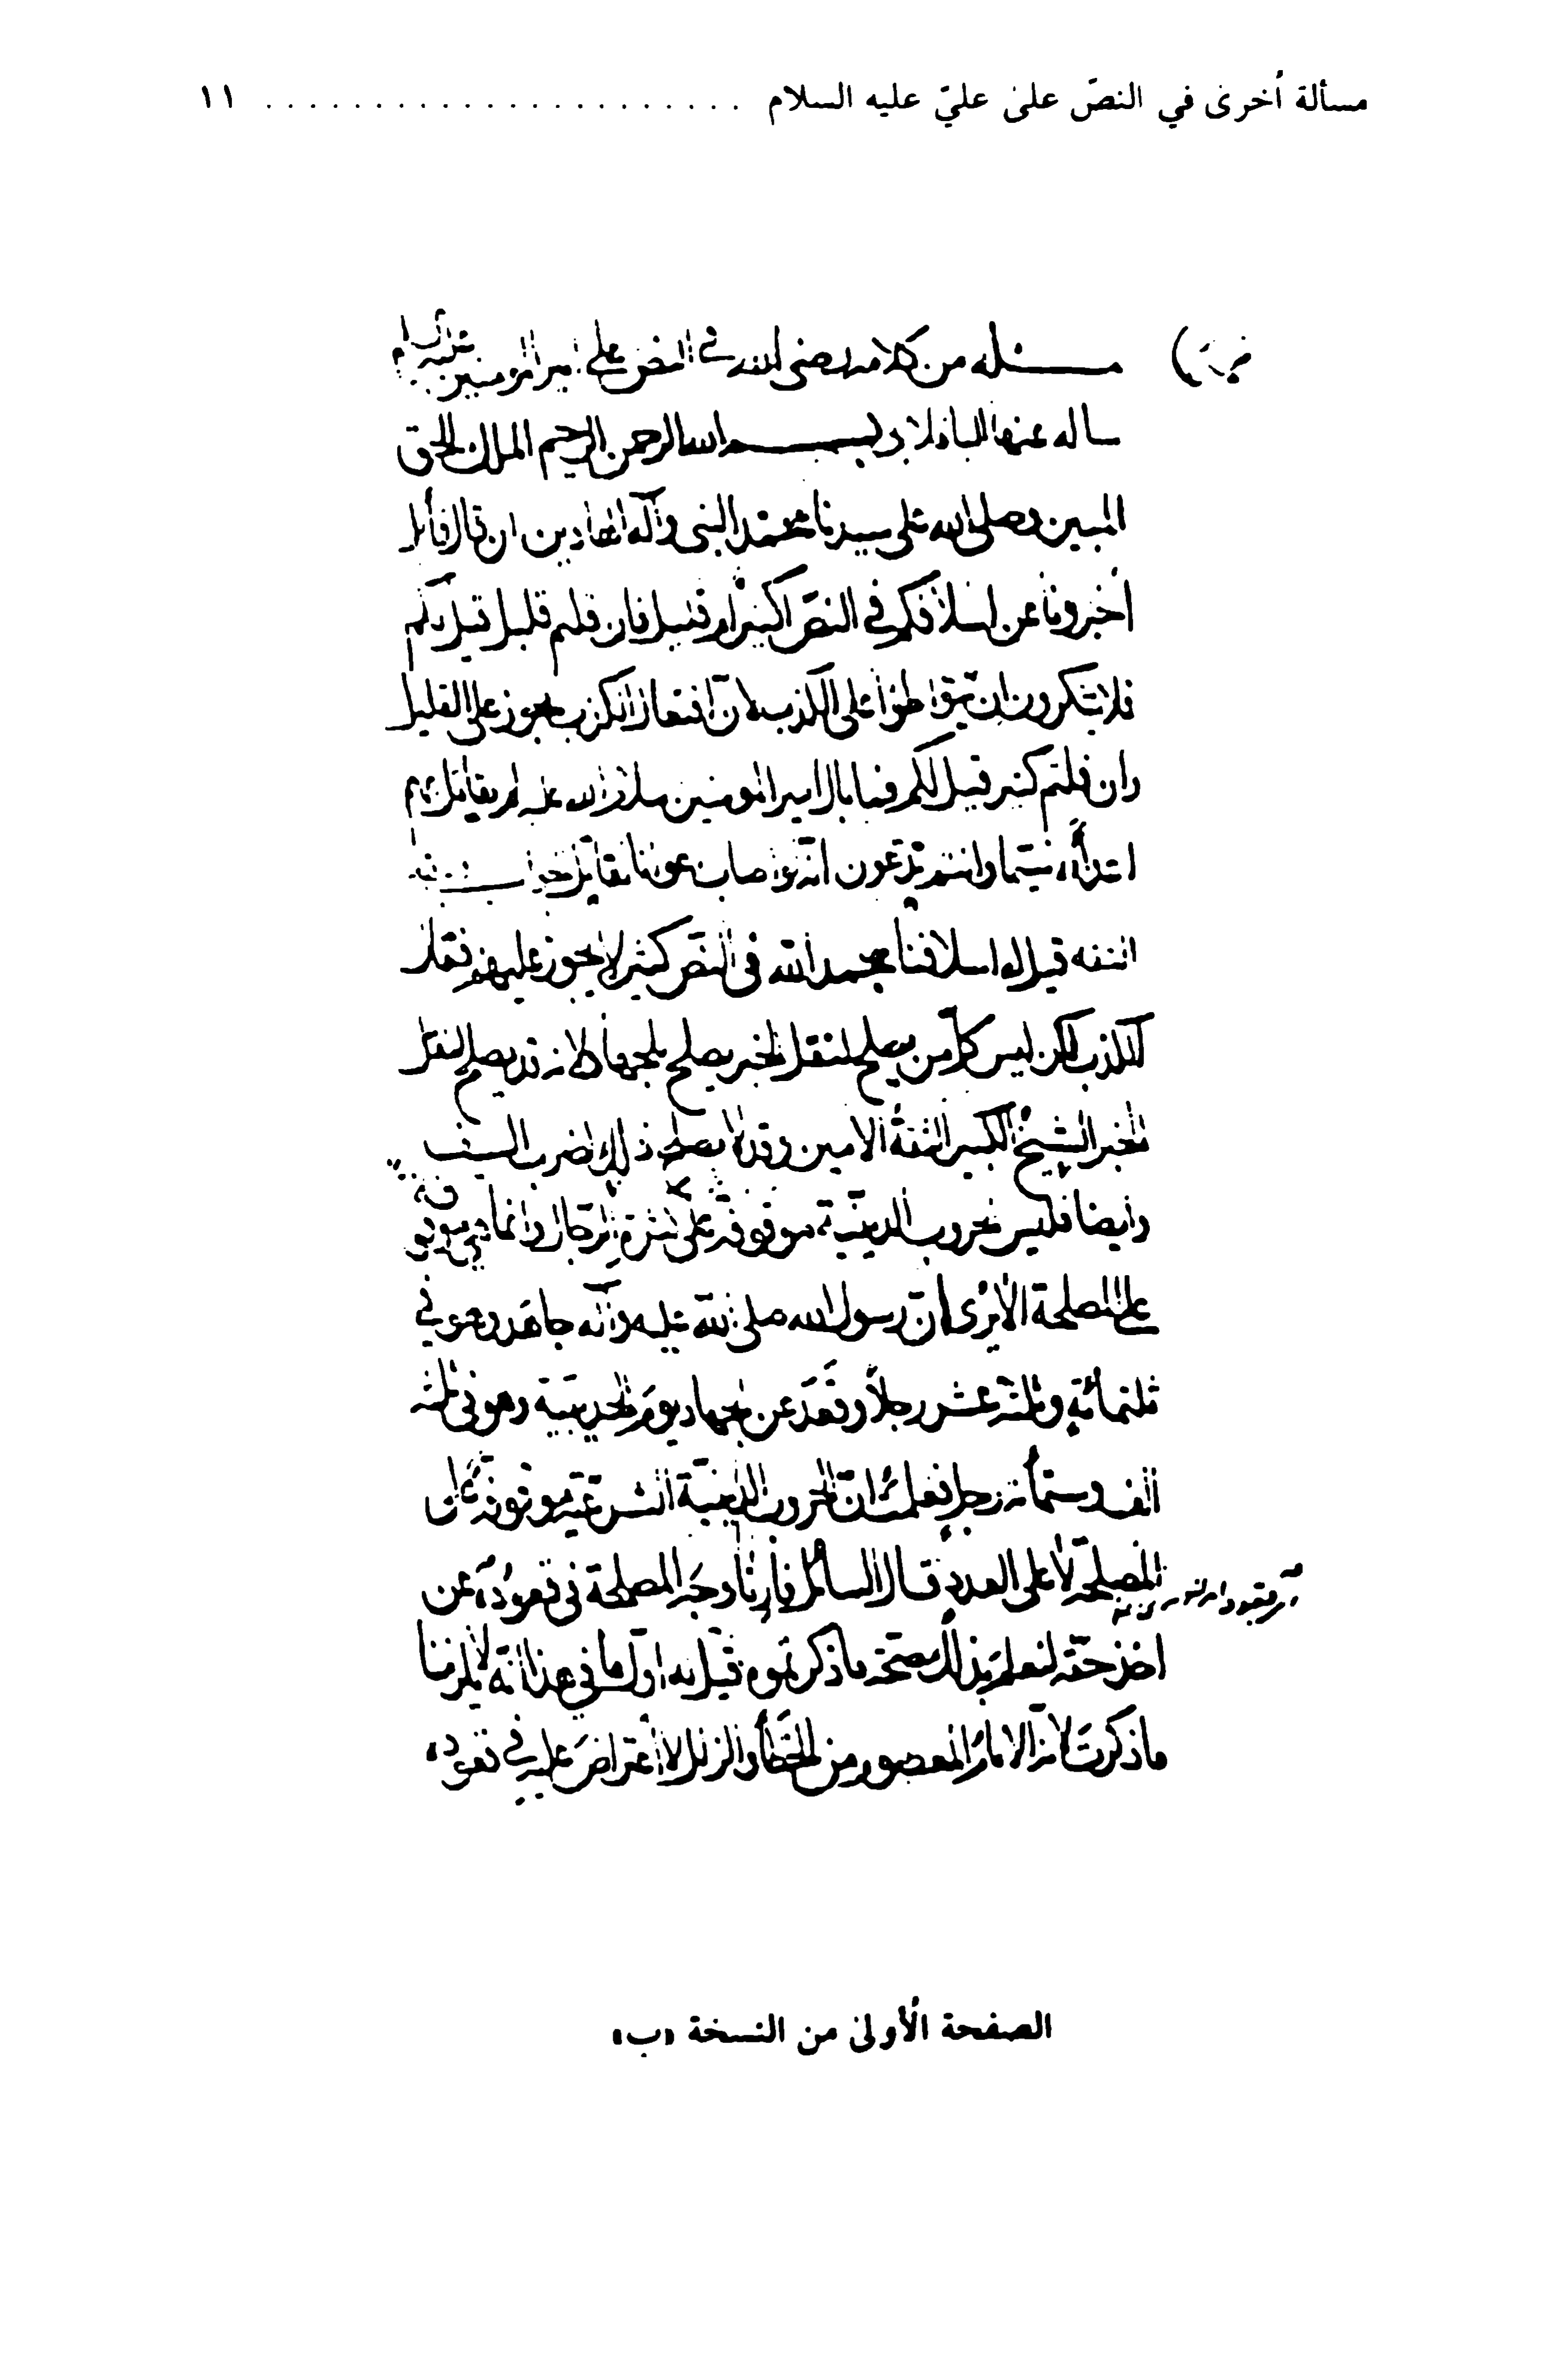 مسألة أخرى في النصّ على عليّ عليه السلام ...................... ١١
مسئله من كلامه رضى الله في النص على امير المومنين عليه السلام
ساله عنها الباقلاني بسم الله الرحمن الرحيم الملك الحق
المبين وصلى الله على سيدنا محمد النبي وآله الهادين ان قال قائل
أخبرونا عن اسلافكم في النصّ اكثير ام قليل فان قلتم قليل قيل لكم
فلا تنكرون ان يتواطؤا على الكذب لانّ افتعال الكذب يجوز على القليل
وان قلتم كثير قيل لكم فما بال امير المومنين صلوات الله عليه لم يقاتل بهم
اعداءه سيّما وانتم تدّعون انّه لو اصاب عوانا لقاتل
قيل له اسلافنا بحمد الله في النصّ كثير لا يجوز عليهم نقل
الكذب لكن ليس كلّ من يصلح لنقل الخبر يصلح للجهاد لانه قد يصلح لنقل
الخبر الشيخ الكبير الثقة الامين وقد لا يصلح ذلك لضرب السيف
وايضا فليس الحروب الدينيّة موقوفة على كثرة الرجال وانما هي موقوفة
على المصلحة الا يرى انّ رسول الله صلى الله عليه وآله جاهد وهو في
ثلثمائة وثلثة عشر رجلاً وقعد عن الجهاد يوم الحديبيّة وهو في ثلثة
الف وستمائة رجل فعلمت انّ الحروب الدينيّة الشرعيّة موقوفة على
المصلحة لا على العدد قال السائل فارنا وجه المصلحة في قعوده عن
اخذ حقّه لنعلم بذلك صحّة ما ذكرتموه قيل له اوّل ما في هذا انّه لا يلزمنا
ما ذكرت لانّ الامام المعصوم من الخطأ والزلل لا اعتراض عليه في قعوده
الصفحة الأولى من النسخة «ب»